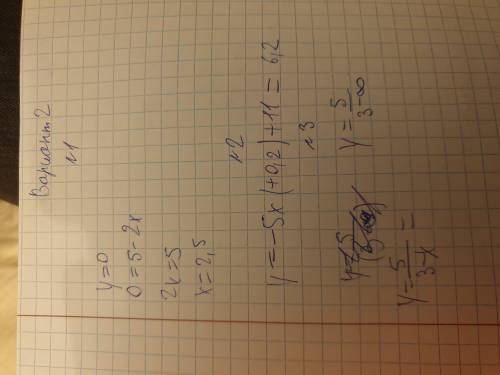 Вариант 2
№1
y=0
0=5-2x
2x=5
x=2,5
№2
y=-5x(+0,2)+11=6,2
№3
y=5/(3-∞)
y=5/(3-x)=